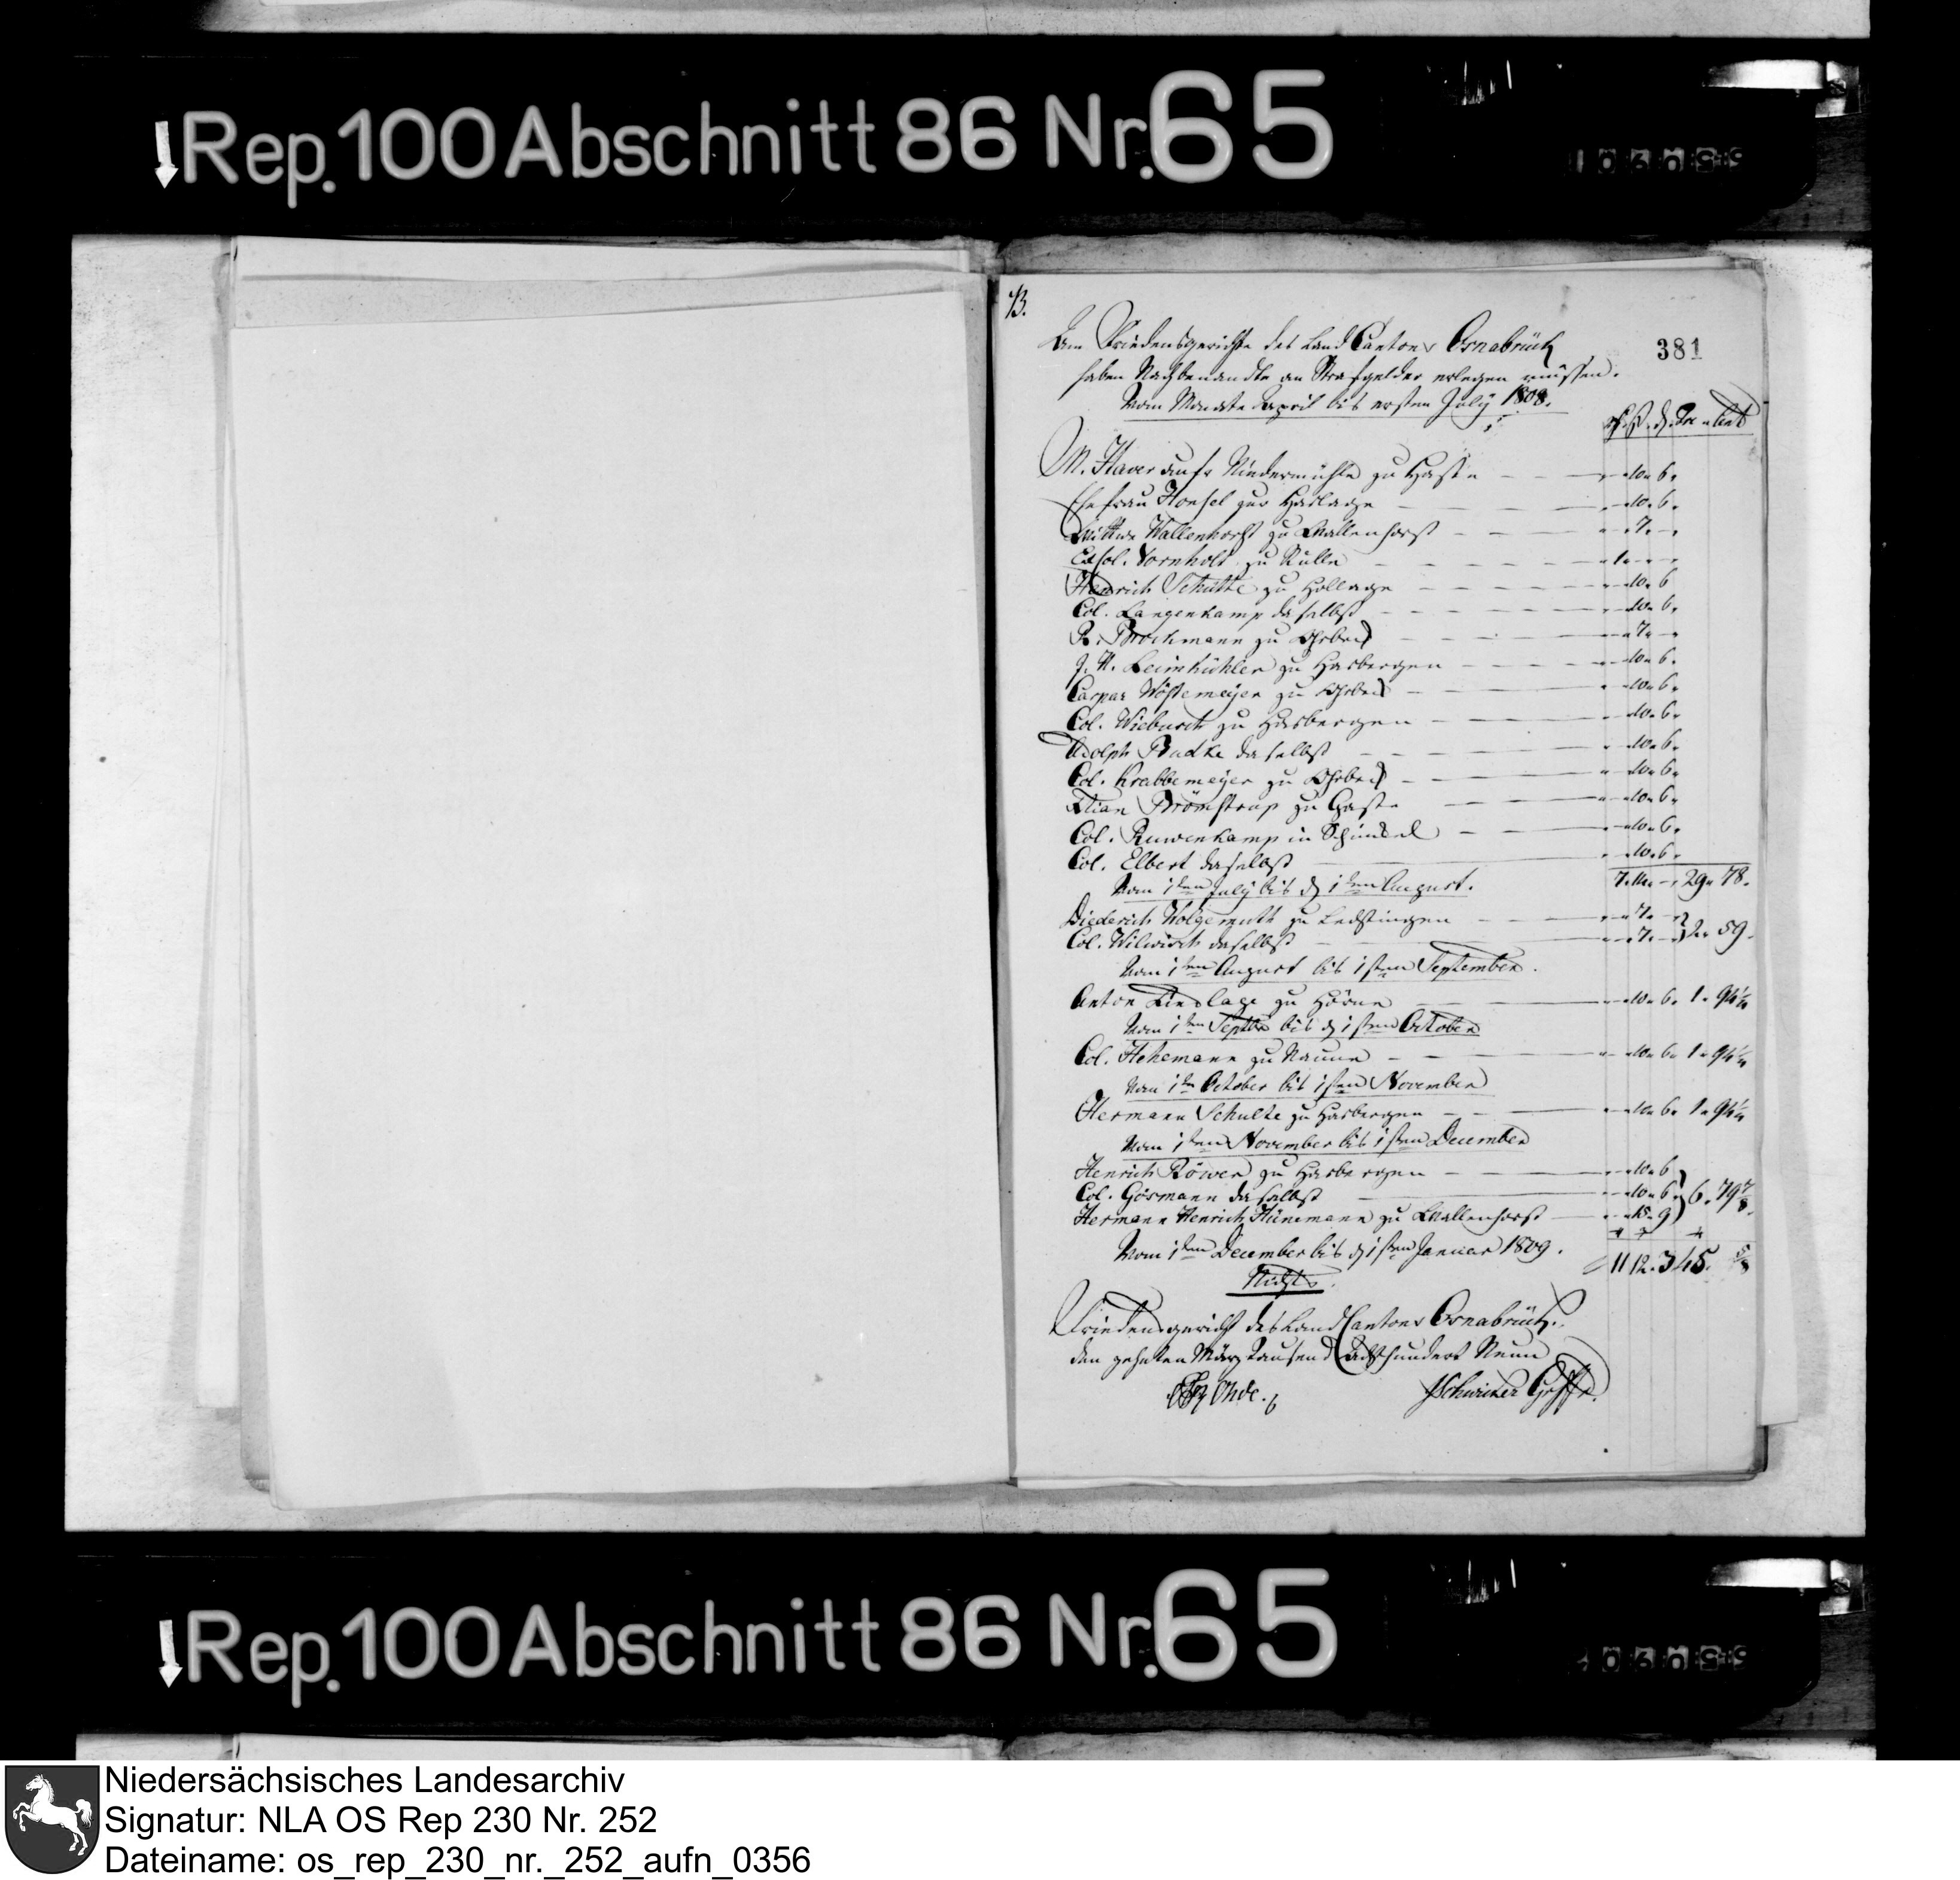 Rep. 100 Abschnitt 86 Nr. 65
B.
381
Am Friedensgerichte des Land Cantons Osnabrück
haben Nachbenandte an Strafgelder erlegen müssen.
Vom Monate April bis ersten July 1808.
M. Haver aufr Niedermühle zu Haste - - „ - 10 „ 6 „
Ehefrau Hensel zur Haslage - - „ - 10 „ 6 „
Wittwe Wallenhorst zu Wallenhorst - - „ - 7 „ - „
Vornholt zu Rulle - - „ 1 „ - „ - „
Henrich Schütte zu Hollage - - „ - 10 „ 6
Col. Langenkamp daselbst - - „ - 10 „ 6 „
Brockmann zu Ohrbeck - - „ - 7 „ - „
J. H. Leimkühler zu Hasbergen - - „ - 10 „ 6 „
Caspar Wöstemeyer zu Ohrbeck - - „ - 10 „ 6 „
Col. Wiebusch zu Hasbergen - - „ - 10 „ 6 „
Adolph Budke daselbst - - „ - 10 „ 6 „
Col. Krabbemeyer zu Ohrbeck - - „ - 10 „ 6 „
Brömstrup zu Gaste - - „ - 10 „ 6 „
Col. Ruwenkamp in Schinckel - - „ - 10 „ 6 „
Col. Elbert daselbst - - „ - 10 „ 6 „
Vom 1ten July bis d 1ten August. 29 „ 78.
Diederich Wolgemuth zu - - „ - 7 „ - „
Col. Wilwisch daselbst - - „ - 7 „ - „ 2 „ 59.
Vom 1ten August bis 1sten September.
Anton Linslage zu Hörne - - „ - 10 „ 6 „ 1 „ 94 1/4
Vom 1ten Septbr bis d 1sten October
Col. Hehemann zu Nanne - - „ - 10 „ 6 „ 1 „ 94 1/4
Vom 1ten October bis 1sten November
Hermann Schulte zu Hasbergen - - „ - 10 „ 6 „ 1 „ 94 1/4
Vom 1sten November bis 1sten December
Henrich Röwer zu Hasbergen - - „ - 10 „ 6
Col. Gösmann daselbst - - „ - 10 „ 6 „ 6 „ 79 7/8.
Hermann Henrich Hünemann zu Wallenhorst - - „ - 15 „ 9
Vom 1ten December bis d 1sten Januar 1809.
11 12 „ 3 45. 5/8
Nichts.
Friedensgericht des Land Cantons Osnabrück.
den zehnten März tausend Achthundert Neun
Rep. 100 Abschnitt 86 Nr. 65
Niedersächsisches Landesarchiv
Signatur: NLA OS Rep 230 Nr. 252
Dateiname: os_rep_230_nr._252_aufn_0356